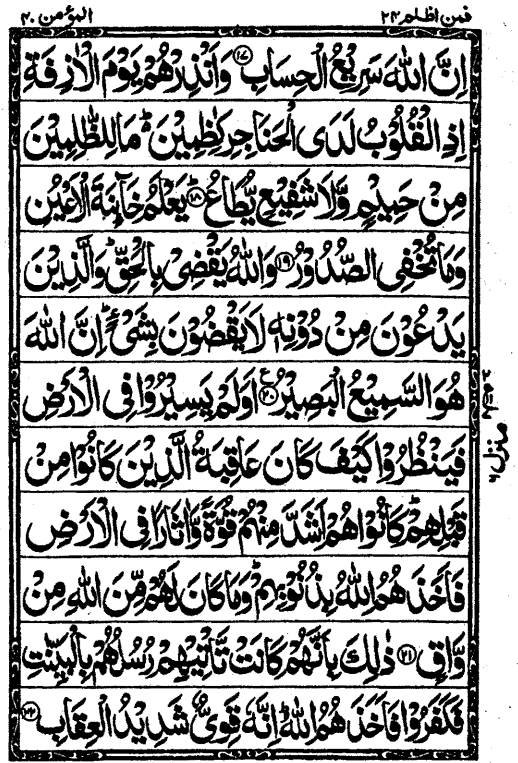 فمن اظلم ۲۴
المؤمن ۴۰
اِنَّ اللّٰهَ سَرِیْعُ الْحِسَابِ ﴿۱۷﴾ وَاَنْذِرْهُمْ یَوْمَ الْاٰزِفَةِ
اِذِ الْقُلُوْبُ لَدَی الْحَنَاجِرِ كٰظِمِیْنَ ؕ۬ مَا لِلظّٰلِمِیْنَ
مِنْ حَمِیْمٍ وَّلَا شَفِیْعٍ یُّطَاعُ ﴿ؕ۱۸﴾ یَعْلَمُ خَآئِنَةَ الْاَعْیُنِ
وَمَا تُخْفِی الصُّدُوْرُ ﴿۱۹﴾ وَاللّٰهُ یَقْضِیْ بِالْحَقِّ ؕ وَالَّذِیْنَ
یَدْعُوْنَ مِنْ دُوْنِهٖ لَا یَقْضُوْنَ بِشَیْءٍ ؕ اِنَّ اللّٰهَ
هُوَ السَّمِیْعُ الْبَصِیْرُ ﴿۲۰﴾ ع اَوَلَمْ یَسِیْرُوْا فِی الْاَرْضِ
فَیَنْظُرُوْا كَیْفَ كَانَ عَاقِبَةُ الَّذِیْنَ كَانُوْا مِنْ
قَبْلِهِمْ ؕ كَانُوْا هُمْ اَشَدَّ مِنْهُمْ قُوَّةً وَّاٰثَارًا فِی الْاَرْضِ
فَاَخَذَهُمُ اللّٰهُ بِذُنُوْبِهِمْ ؕ وَمَا كَانَ لَهُمْ مِّنَ اللّٰهِ مِنْ
وَّاقٍ ﴿۲۱﴾ ذٰلِكَ بِاَنَّهُمْ كَانَتْ تَّاْتِیْهِمْ رُسُلُهُمْ بِالْبَیِّنٰتِ
فَكَفَرُوْا فَاَخَذَهُمُ اللّٰهُ ؕ اِنَّهٗ قَوِیٌّ شَدِیْدُ الْعِقَابِ ﴿۲۲﴾
منزل ۶